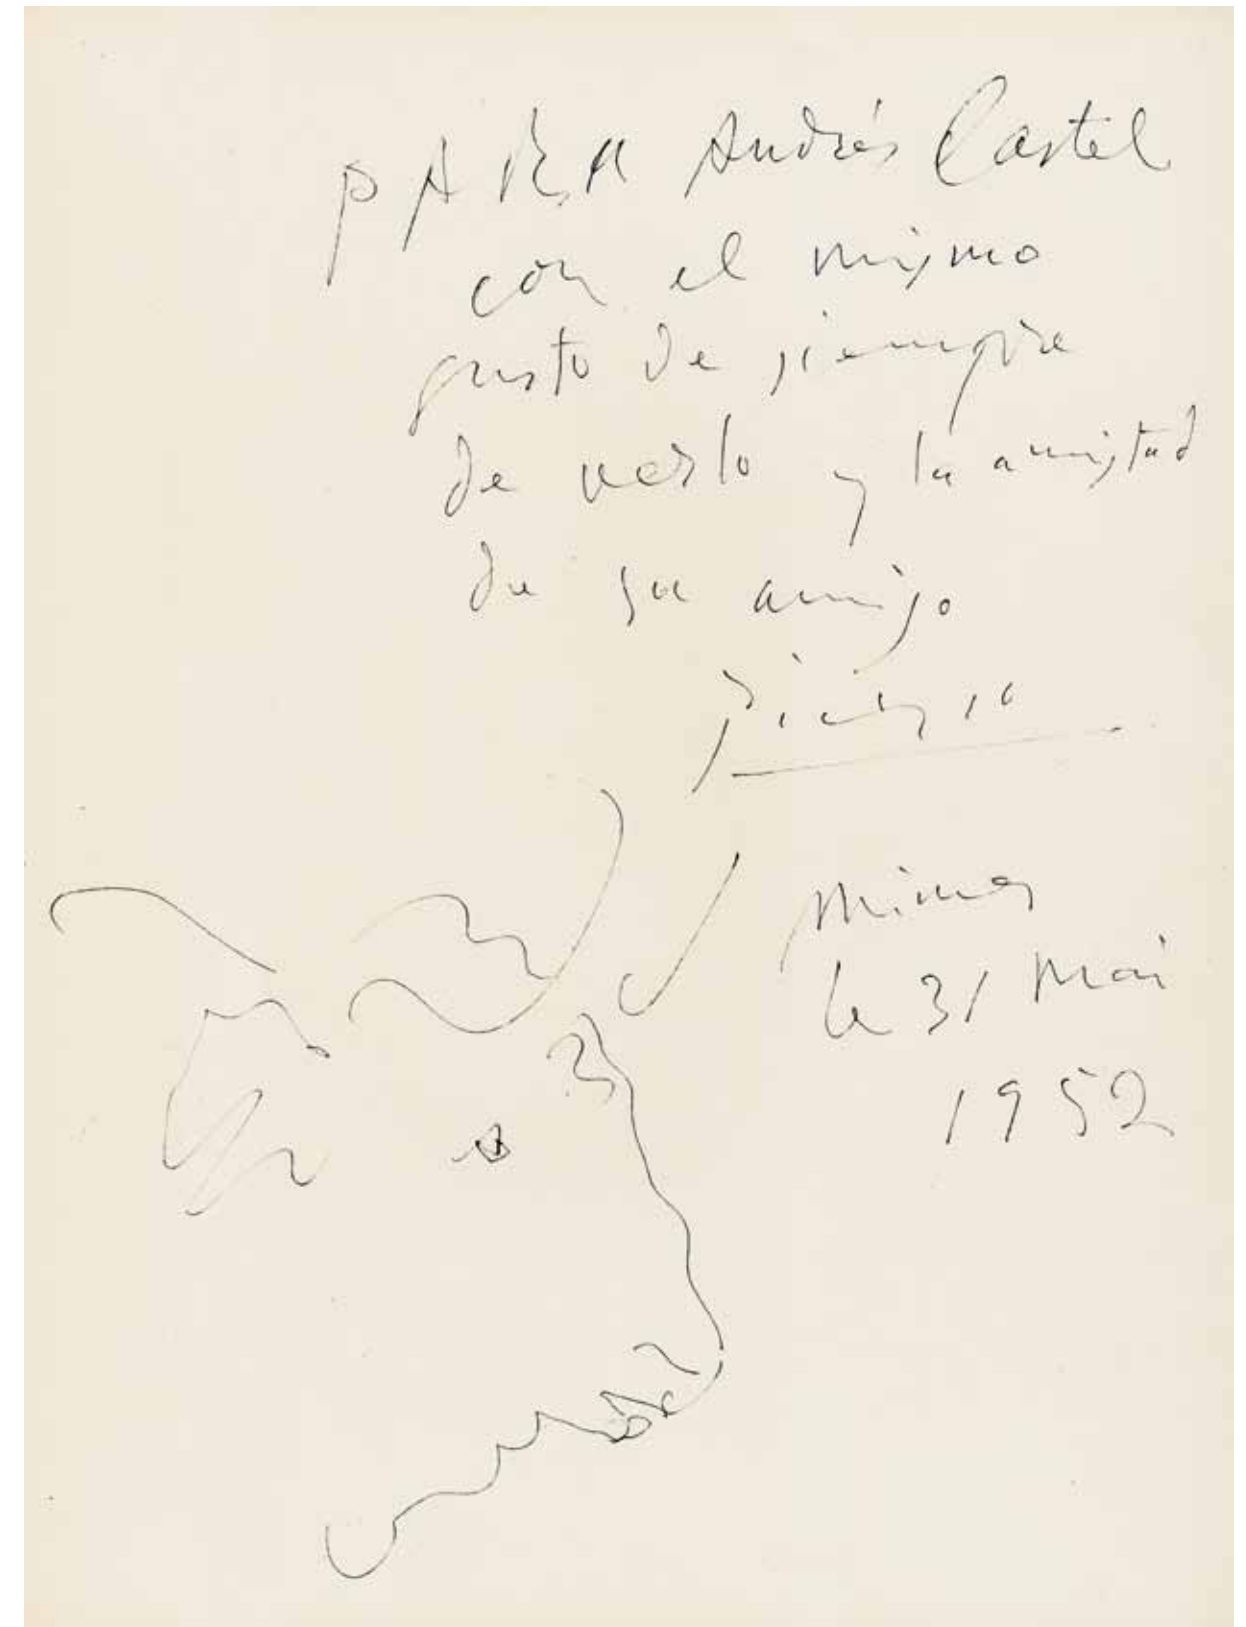 PARA Andrés Castel
con el mismo
gusto de siempre
de verlo y la amistad
de su amigo
Picasso
Nimes
le 31 Mai
1952